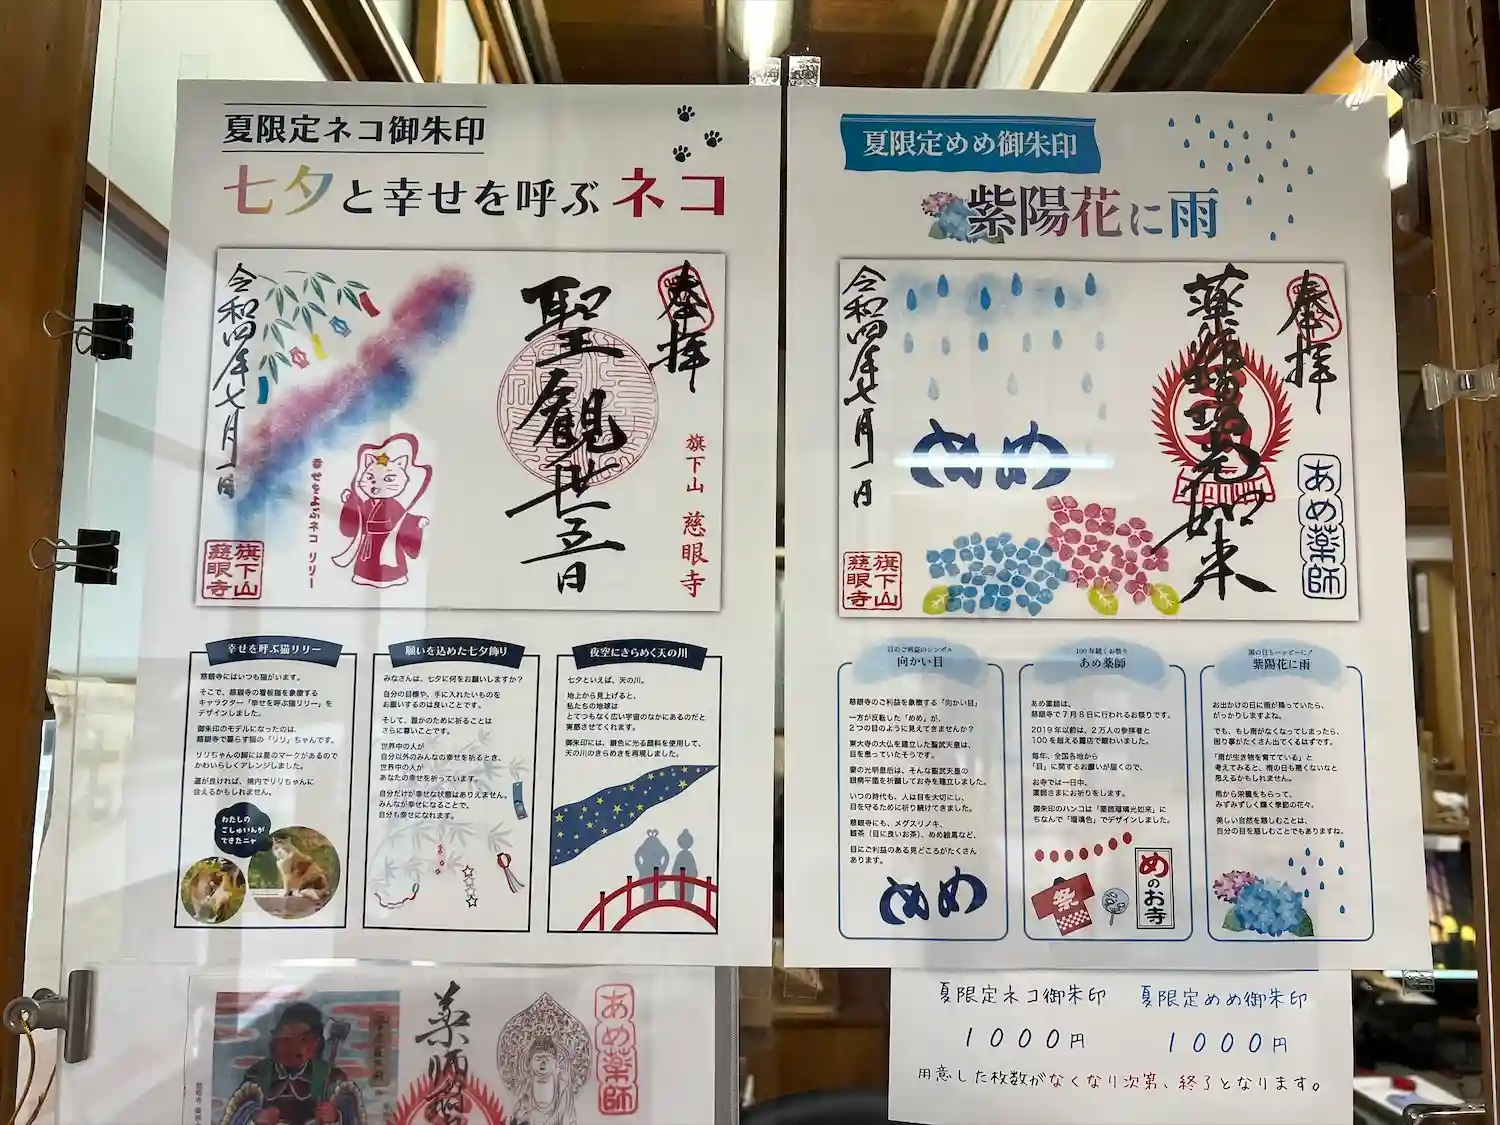 夏限定ネコ御朱印
七夕と幸せを呼ぶネコ
奉拝
聖観世音
旗下山 慈眼寺
令和四年七月一日
幸せをよぶネコ リリー
旗下山
慈眼寺
幸せを呼ぶ猫リリー
慈眼寺にはいつも猫がいます。
そこで、慈眼寺の看板猫を象徴する
キャラクター「幸せを呼ぶ猫リリー」を
デザインしました。
御朱印のモデルになったのは、
慈眼寺で暮らす猫の「リリ」ちゃんです。
リリちゃんの額には星のマークがあるので
かわいらしくアレンジしました。
運が良ければ、境内でリリちゃんに
会えるかもしれません。
わたしの
ごしゅいんが
できたニャ
願いを込めた七夕飾り
みなさんは、七夕に何をお願いしますか？
自分の目標や、手に入れたいものを
お願いするのは良いことです。
そして、誰かのために祈ることは
さらに尊いことです。
世界中の人が
自分以外のみんなの幸せを祈るとき、
世界中の人が
あなたの幸せを祈っています。
自分だけが幸せな状態はありえません。
みんなが幸せになることで、
自分も幸せになれます。
夜空にきらめく天の川
七夕といえば、天の川。
地上から見上げると、
私たちの地球は
とてつもなく広い宇宙のなかにあるのだと
実感させてくれます。
御朱印には、銀色に光る顔料を使用して、
天の川のきらめきを再現しました。
夏限定めめ御朱印
紫陽花に雨
奉拝
薬師瑠璃光如来
あめ薬師
令和四年七月一日
めめ
旗下山
慈眼寺
目のご利益のシンボル
向かい目
慈眼寺のご利益を象徴する「向かい目」
一方が反転した「めめ」が、
2つの目のように見えてきませんか？
東大寺の大仏を建立した聖武天皇は、
目を患っていたそうです。
妻の光明皇后は、そんな聖武天皇の
闘病平癒を祈願してお寺を建立しました。
いつの時代も、人は目を大切にし、
目を守るために祈り続けてきました。
慈眼寺にも、メグスリノキ、
眼茶（目に良いお茶）、めめ絵馬など、
目にご利益のある見どころがたくさん
あります。
めめ
100年続くお祭り
あめ薬師
あめ薬師は、
慈眼寺で7月8日に行われるお祭りです。
2019年以前は、2万人の参拝者と
100を超える露店で賑わいました。
毎年、全国各地から
「目」に関するお願いが届くので、
お寺では一日中、
薬師さまにお祈りをします。
御朱印のハンコは「薬師瑠璃光如来」に
ちなんで「瑠璃色」でデザインしました。
祭
めのお寺
雨の日もハッピーに！
紫陽花に雨
お出かけの日に雨が降っていたら、
がっかりしますよね。
でも、もし雨がなくなってしまったら、
困り事がたくさん出てくるはずです。
「雨が生き物を育てている」と
考えてみると、雨の日も悪くないなと
思えるかもしれません。
雨から栄養をもらって、
みずみずしく輝く季節の花々。
美しい自然を慈しむことは、
自分の目を慈しむことでもありますね。
薬師
あめ薬師
夏限定ネコ御朱印
1000円
夏限定めめ御朱印
1000円
用意した枚数がなくなり次第、終了となります。